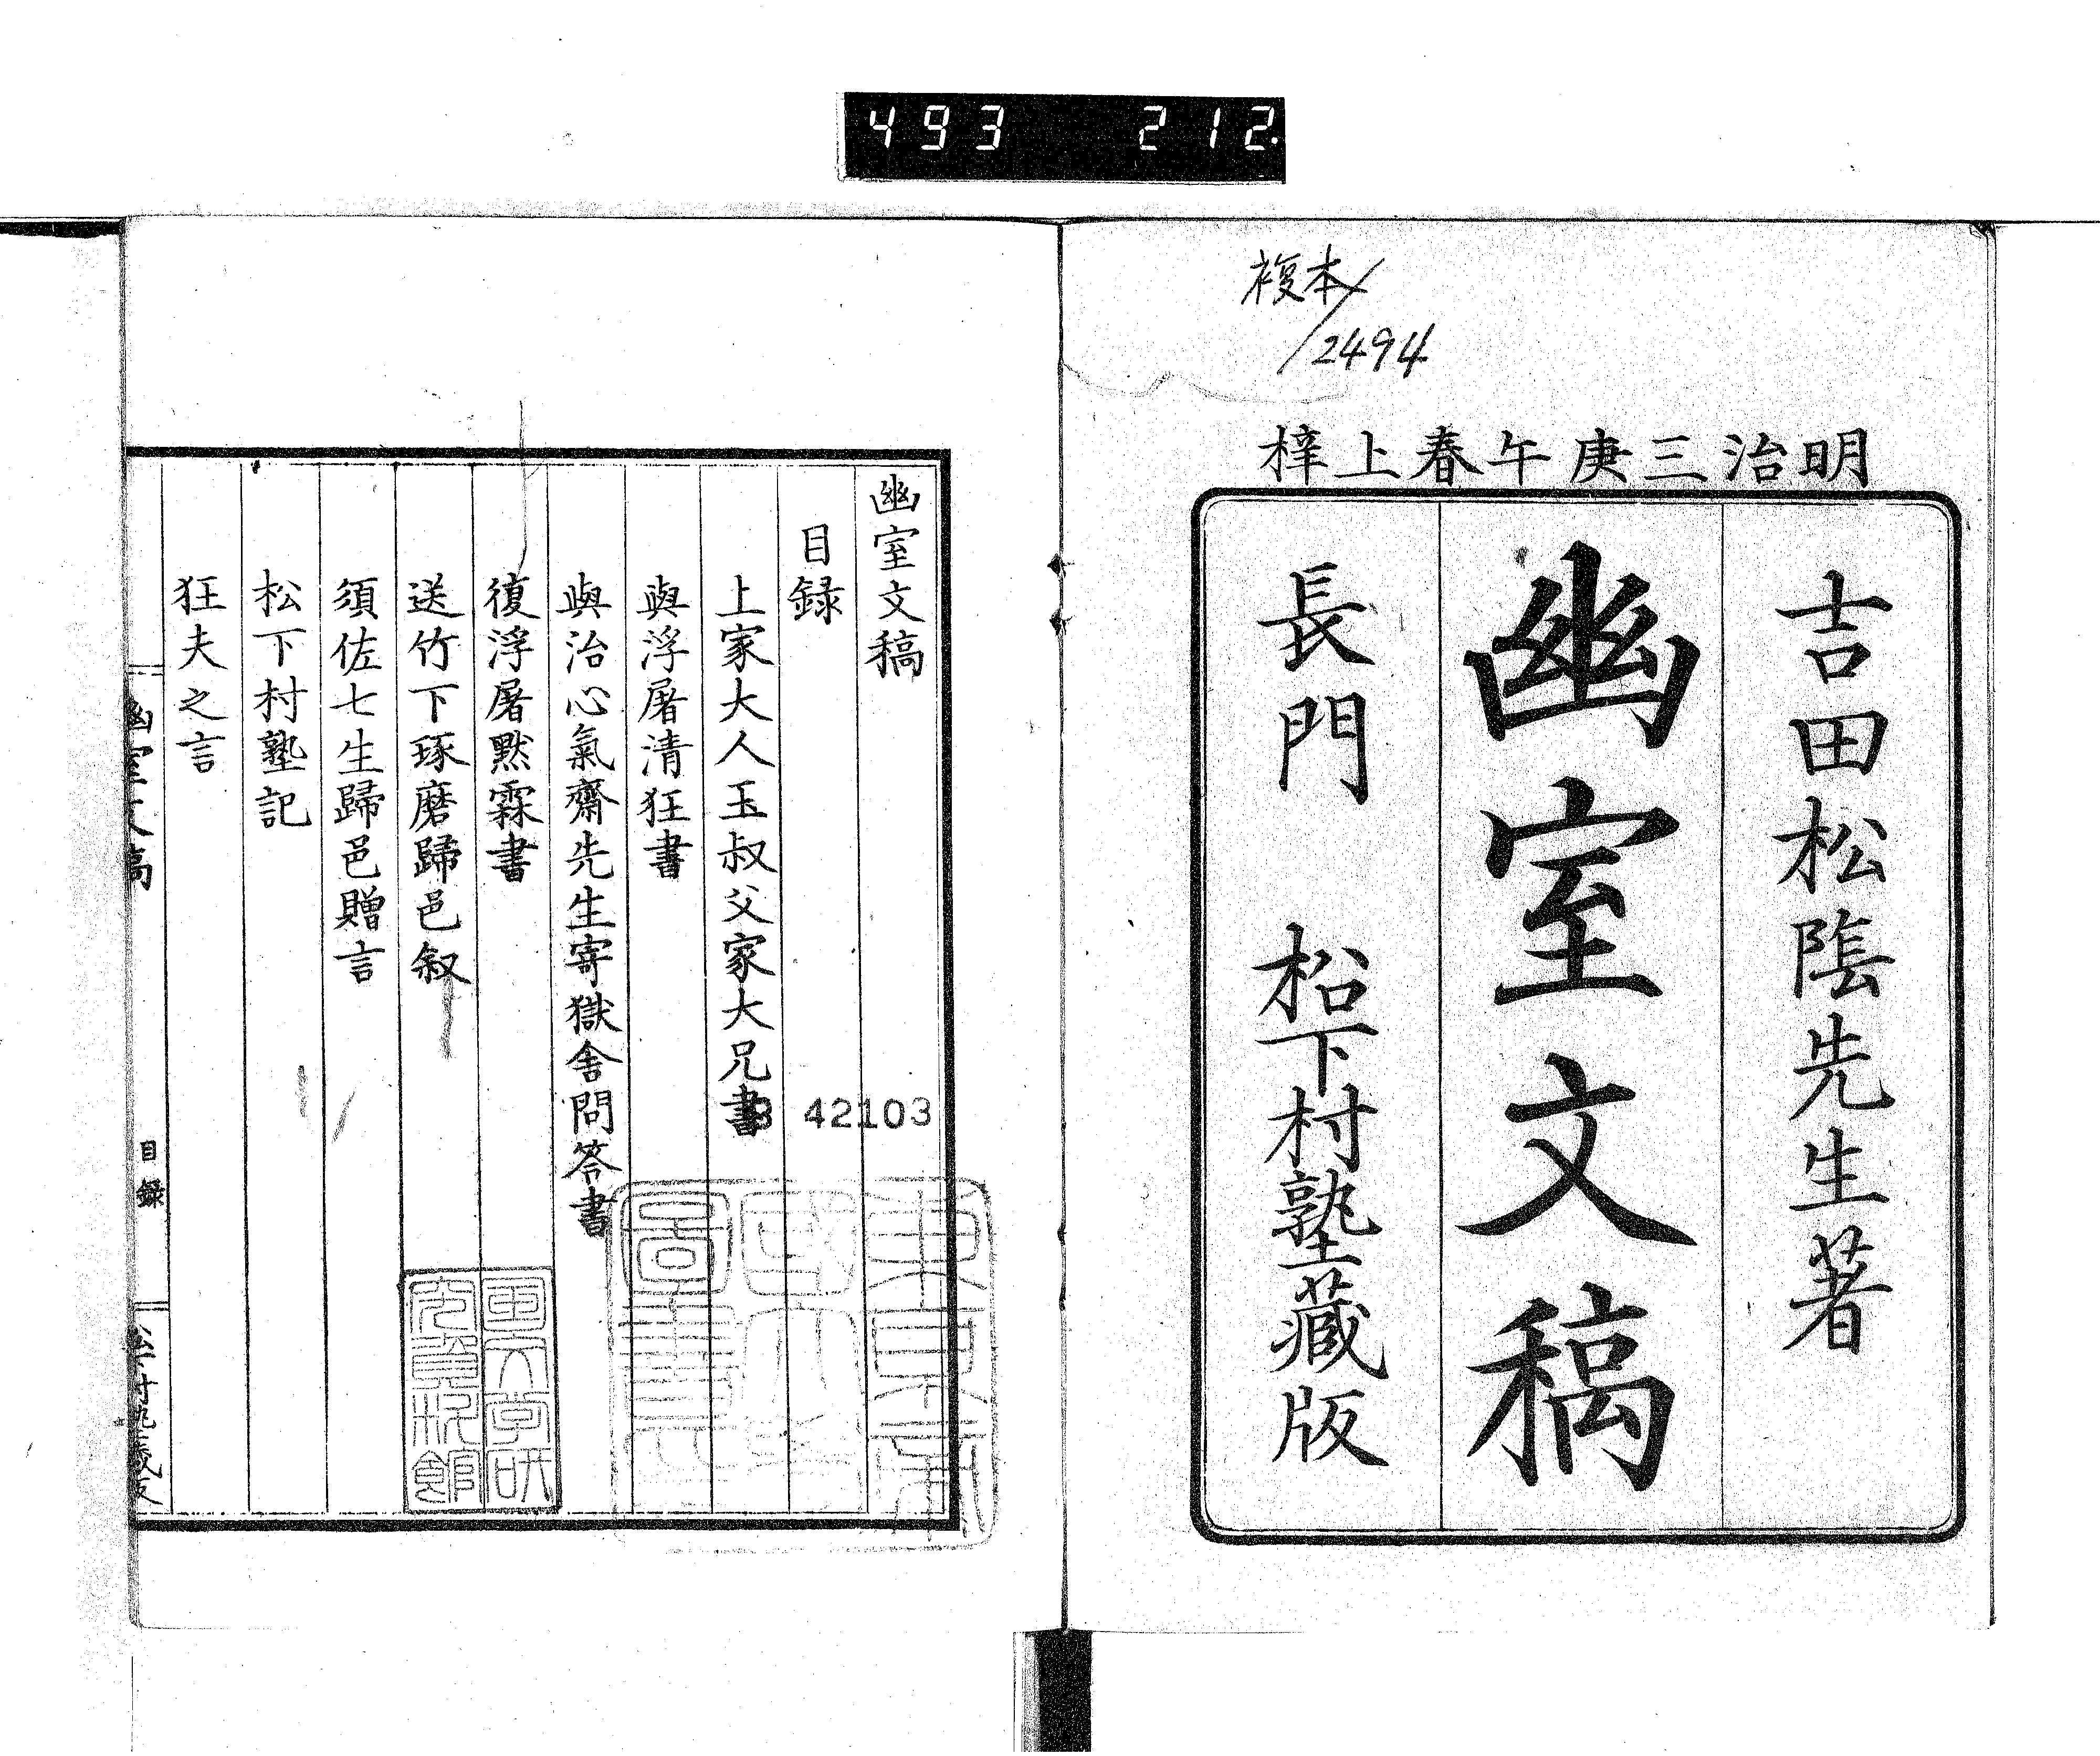 493 212.
複本
2494
明治三庚午春上梓
吉田松陰先生著
幽室文稿
長門 松下村塾藏版
幽室文稿
目録
上家大人玉叔父家大兄書
與浮屠清狂書
與治心氣齋先生寄獄舍問答書
復浮屠黙霖書
送竹下琢磨歸邑叙
須佐七生歸邑贈言
松下村塾記
狂夫之言
幽室文稿
目録
松下村塾藏版
42103